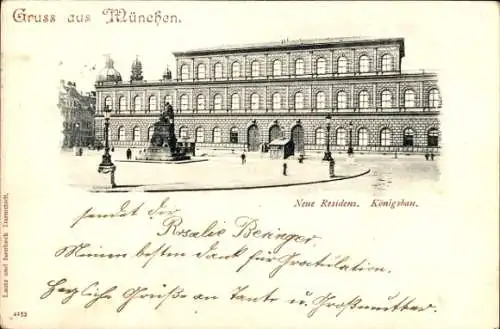 Gruss aus München.
Neue Residenz. Königsbau.
sendet Dir
Rosalie Beringer.
Meinen besten Dank für Gratulation.
Herzliche Grüße an Tante u. Großmutter.
Lautz und Isenbeck Darmstadt.
4153